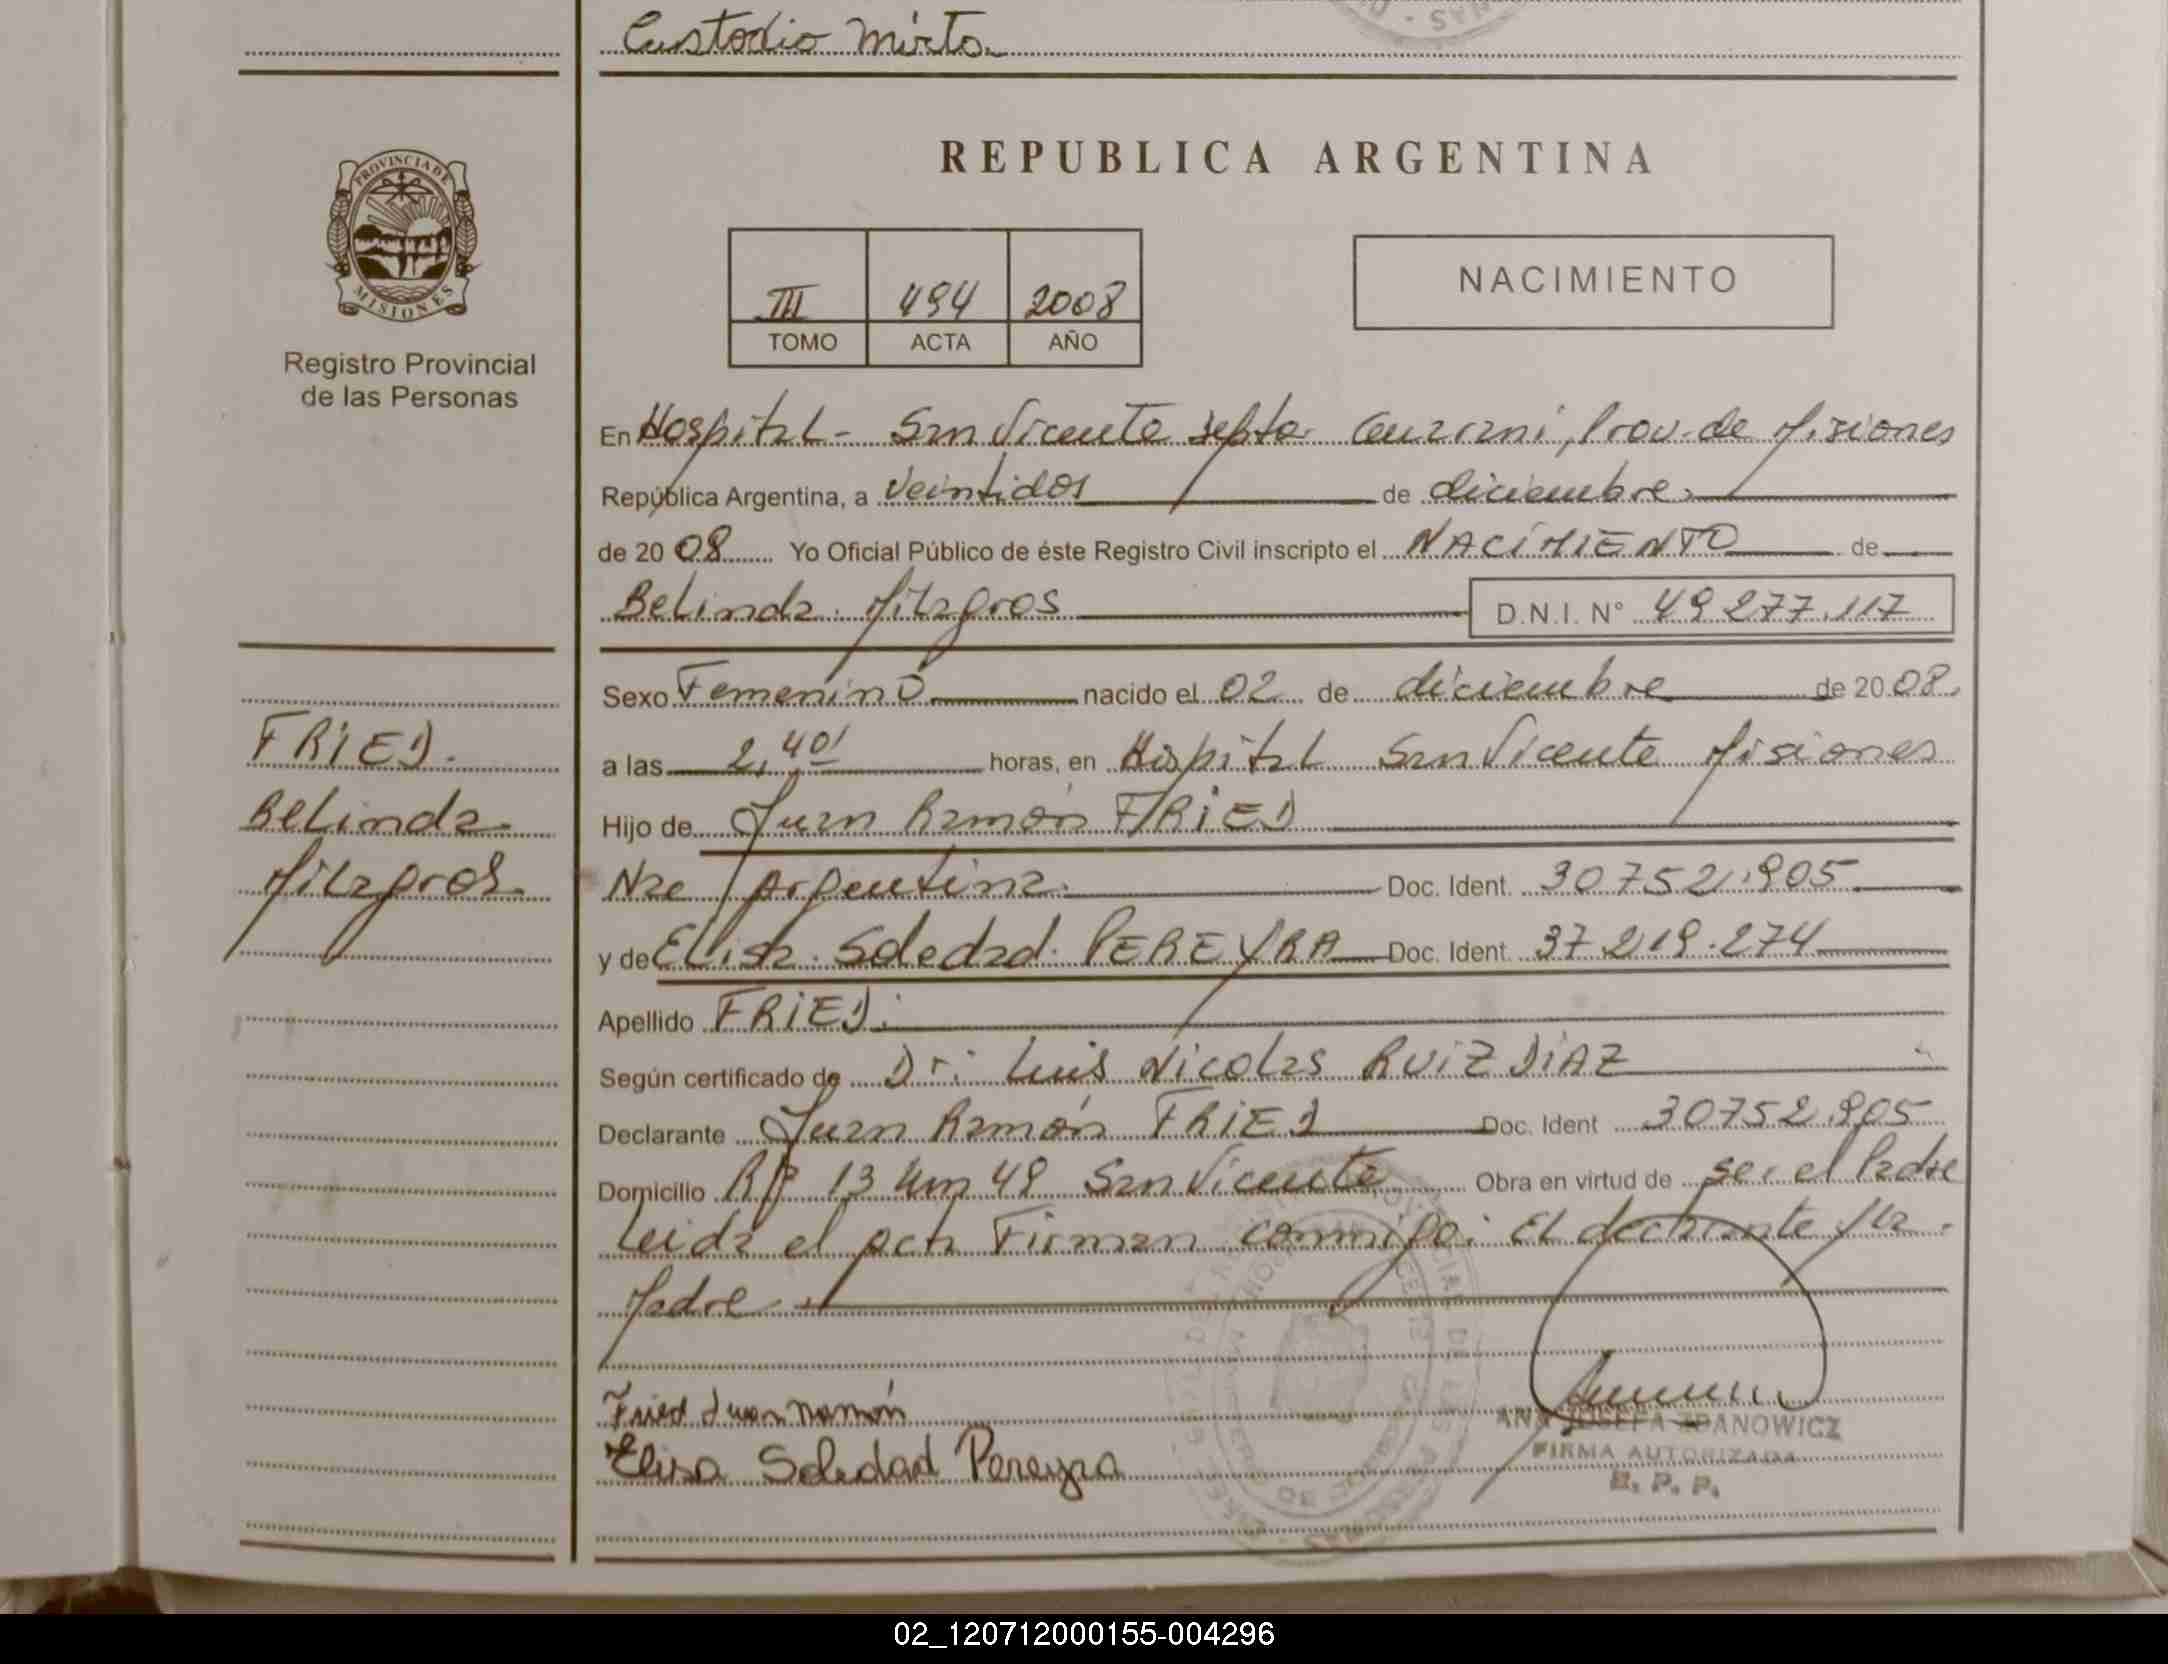 Custodio Mirto.
REPUBLICA ARGENTINA
PROVINCIA DE
MISIONES
Registro Provincial
de las Personas
III 494 2008
TOMO ACTA AÑO
NACIMIENTO
En Hospital - San Vicente Depto Guarani, Prov. de Misiones
República Argentina, a Veintidos de diciembre.
de 20 08 Yo Oficial Público de éste Registro Civil inscripto el NACIMIENTO de
Belinda Milagros
D.N.I. N° 49.277.117
Sexo Femenino nacido el 02 de diciembre de 20 08.
a las 2,40' horas, en Hospital San Vicente Misiones
Hijo de Juan Ramón FRIED
Nac Argentina. Doc. Ident. 30752.905
y de Elisa Soledad PEREYRA Doc. Ident. 37.219.274
Apellido FRIED.
Según certificado de Dr. Luis Nicolas RUIZ DIAZ
Declarante Juan Ramón FRIED Doc. Ident 30752.905
Domicilio RP 13 km 49 San Vicente Obra en virtud de ser el Padre
Leida el acta Firman conmigo: El declarante y la
Madre
FRIED.
Belinda
Milagros
Fried Juan Ramón
Elisa Soledad Pereyra
ANA JOSEFA ZDANOWICZ
FIRMA AUTORIZADA
R. P. P.
02_120712000155-004296